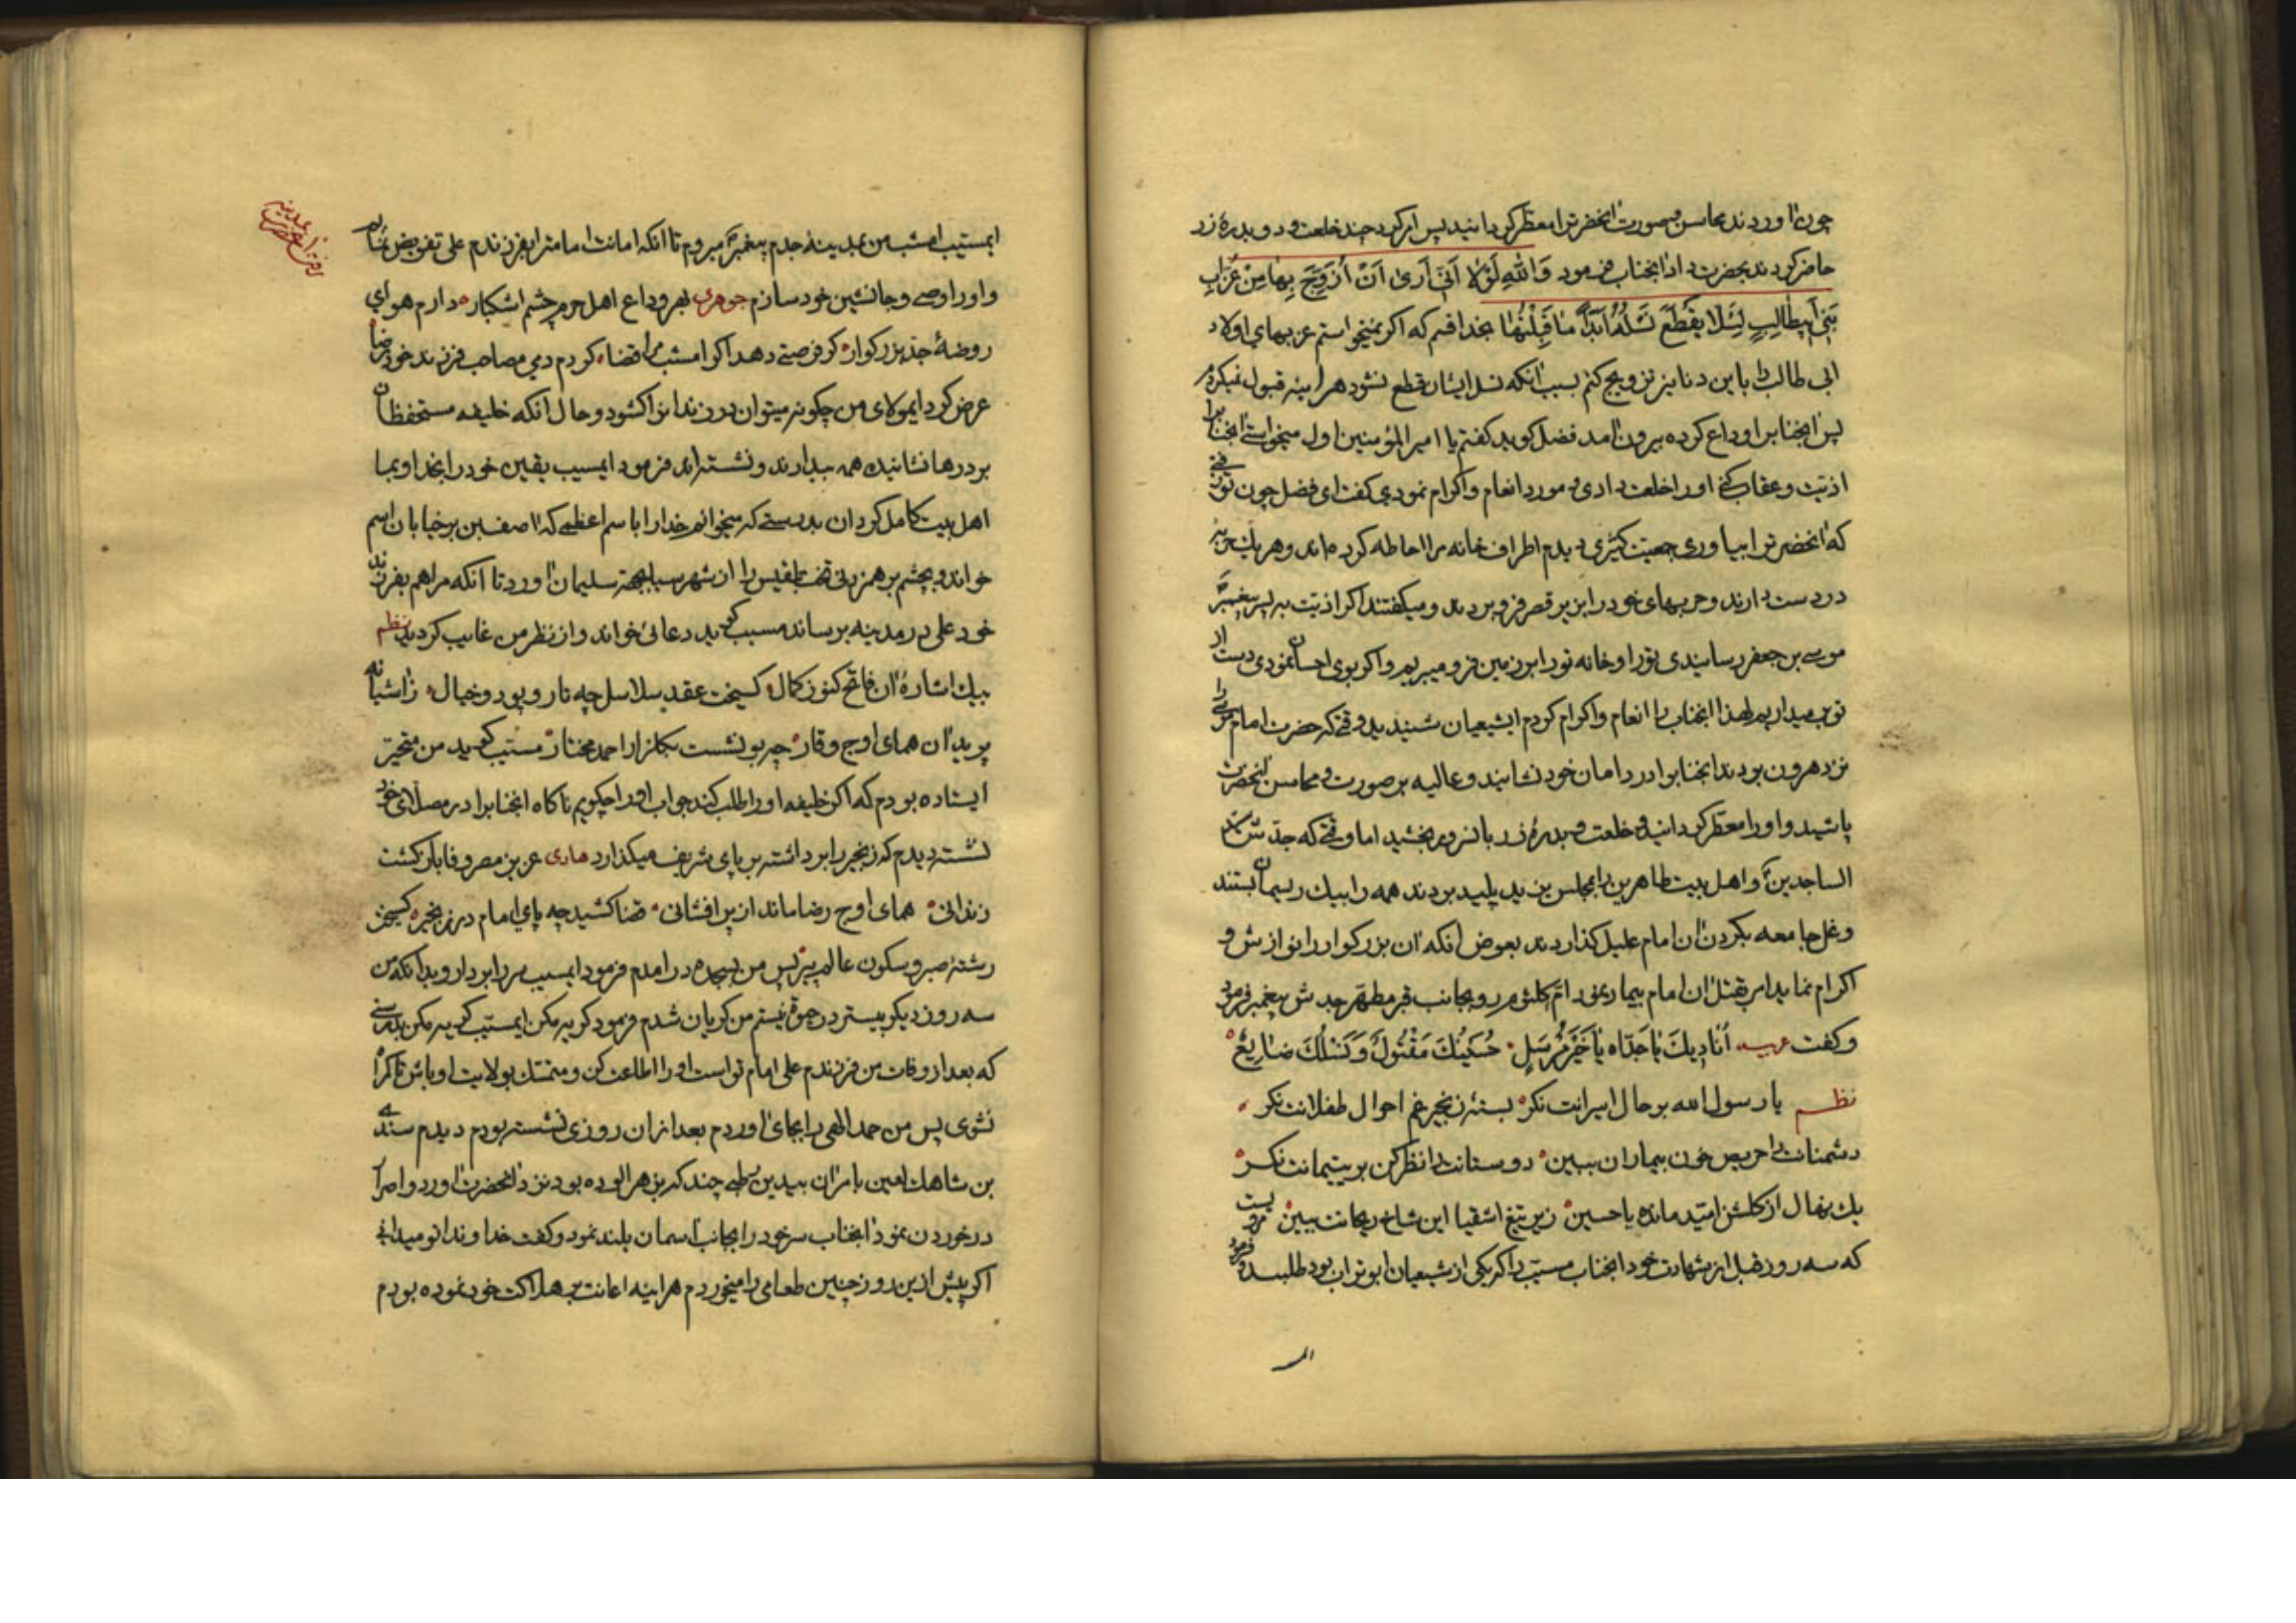 چون آوردند محاسن و صورت آنحضرترا معطر گردانید پس امر کرد چند خلعت و دو بدره زر
حاضر کردند بحضرت داد آنجناب فرمود وَاللّهِ لَوْلا اَنّی اَریٰ اَنْ اُزَوِّجَ بِهٰا مِنْ عُزّابِ
بَنی اَبیطالِبٍ لِئَلّا یَقْطَعَ نَسْلُهُ اَبَداً مٰا قَبِلْتُهٰا بخدا قسم که اگر نمیخواستم عزبهای اولاد
ابی طالب را باین دنانیز تزویج کنم بسبب آنکه نسل ایشان قطع نشود هر اینه قبول نمیکردم
پس آنجنابرا وداع کرده بیرون آمد فضل کوید گفتم یا امیر المؤمنین اول میخواستی آنجنابرا
اذیت و عقاب کنی او را خلعت دادی و مورد انعام و اکرام نمودی گفت ای فضل چون تو رفتی
که آنحضرترا بیاوری جمعیت کثیری دیدم اطراف خانه مرا احاطه کرده اند و هر یک حربه
در دست دارند و حربهای خود را بزیر قصر فرو بردند و میگفتند اگر اذیت به پسر پیغمبر
موسی بن جعفر رسانیدی تو را و خانه تو را بزمین فرو میبریم و اگر بوی احسان نمودی دست از
تو بر میداریم لهذا آنجناب را انعام و اکرام کردم ایشیعیان شنیدید وقتی که حضرت امام موسی را
نزد هرون بردند آنجنابرا در دامان خود نشانید و عالیه بر صورت و محاسن آنحضرت
پاشید و او را معطر گردانید و خلعت و بدره زر بانسرور بخشید اما وقتی که جدش سید
الساجدین و اهل بیت طاهرین را بمجلس یزید پلید بردند همه را بیک ریسمان بستند
و غل جامعه بگردن آن امام علیل گذاردند بعوض آنکه آن بزرگوار را نوازش و
اکرام نماید امر بقتل آن امام بیمار نمود ام کلثوم رو بجانب قبر مطهر جدش پیغمبر نمود
و گفت عربیه اُنادیکَ یٰا جَدّاه یٰا خَیْرَ مُرْسَلٍ حُسَیْنُکَ مَقْتُولٌ وَ نَسْلُکَ ضٰایِعٌ
نظم یا رسول الله بر حال اسیرانت نگر بسته زنجیر غم احوال طفلانت نگر
دشمنانت را حریص خون بیماران ببین دوستانت را نظر کن بر یتیمانت نگر
یک نهال از گلشن امید مانده یا حسین زیر تیغ اشقیا این شاخ ریحانت ببین
که سه روز قبل از شهادت خود آنجناب مسیب را که یکی از شیعیان ابوتراب بود طلبید و فرمود
ایمسیب امشب من بمدینه جدم پیغمبر میروم تا آنکه امانت امامترا بفرزندم علی تفویض نمایم
و او را وصی و جانشین خود سازم جوهری بهر وداع اهل حرم چشم اشکبار دارم هوای
روضه جد بزرگوار گر فرصتی دهد اگر امشب مرا قضا گردم دمی مصاحب فرزند خود رضا
عرض کرد ایمولای من چگونه میتوان در زندانرا گشود و حال آنکه خلیفه مستحفظان
بر درها نشانیده همه بیدارند و نشسته اند فرمود ایمسیب یقین خود را بخدا و بما
اهل بیت کامل گردان بدرستی که میخوانم خدا را باسم اعظمی که آصف بن برخیا بان اسم
خواند و بچشم بر هم زدنی تخت بلقیس را از شهر سبا بجهة سلیمان آورد تا آنکه مرا هم بفرزند
خود علی در مدینه برساند مسیب گوید دعائی خواند و از نظر من غایب گردید نظم
بیک اشاره آن فاتح کنوز کمال گسیخت عقد سلاسل چه تار و پود خیال ز آشیانه
پرید آن همای اوج وقار چه بو نشست بگلزار احمد مختار مسیب گوید من متحیر
ایستاده بودم که اگر خلیفه او را طلب کند جواب او را چگویم ناگاه آنجنابرا در مصلای خود
نشسته دیدم که زنجیر را برداشته بر پای شریف میگذارد عزیز مصر وفا باز گشت
زندانی همای اوج رضا ماند از پر افشانی قضا کشید چه پای امام در زنجیر گسیخت
رشته صبر و سکون عالم پیر پس من بسجده در آمدم فرمود ایمسیب سر را بردار و بدانکه من
سه روز دیگر بیستر در حیوة نیستم من گریان شدم فرمود گریه مکن ایمسیب گریه مکن بدرستی
که بعد از وفات من فرزندم علی امام تو است او را اطاعت کن و متمسک بولایت او باش تا گمراه
نشوی پس من حمد الهی را بجای آوردم بعد از آن روزی نشسته بودم دیدم سندی
بن شاهک لعین بامر آن بیدین رطبی چند که بزهر آلوده بود نزد آنحضرت آورد و اصرار
در خوردن نمود آنجناب سر خود را بجانب آسمان بلند نمود و گفت خداوندا تو میدانی
اگر پیش ازین روز چنین طعامی را میخوردم هر اینه اعانت بر هلاکت خود نموده بودم